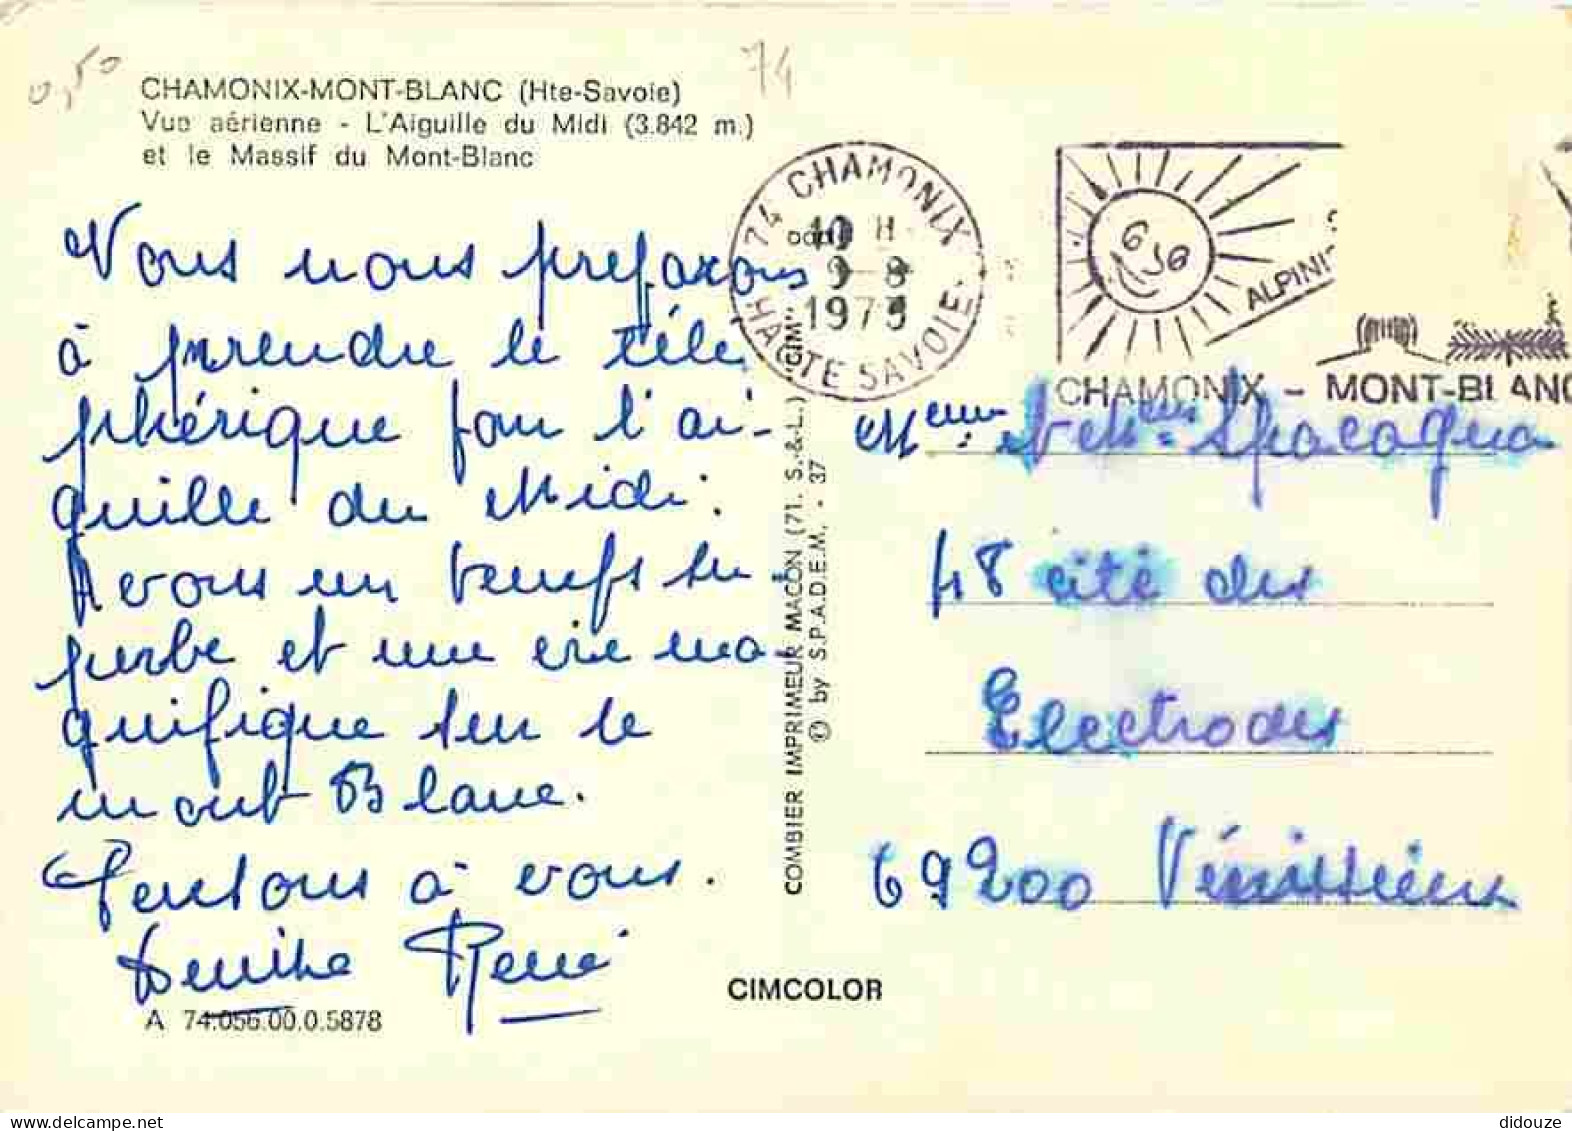 0,50
74
CHAMONIX-MONT-BLANC (Hte-Savoie)
Vue aérienne - L'Aiguille du Midi (3.842 m.)
et le Massif du Mont-Blanc
Nous nous préparons
à prendre le télé
phérique pour l'ai-
guille du Midi.
Avons un temps su-
perbe et une vue ma-
gnifique sur le
mont Blanc.
Pensons à vous.
René
A 74.056.00.0.5878
COMBIER IMPRIMEUR MACON (71. S.-&-L.) "CIM"
© by S.P.A.D.E.M. - 37
CIMCOLOR
74 CHAMONIX
10 H
9-8
HAUTE SAVOIE
ALPINI
CHAMONIX - MONT-BLANC
et Spacagna
48 cité des
Electrodes
69200 Vénissieux
didouze